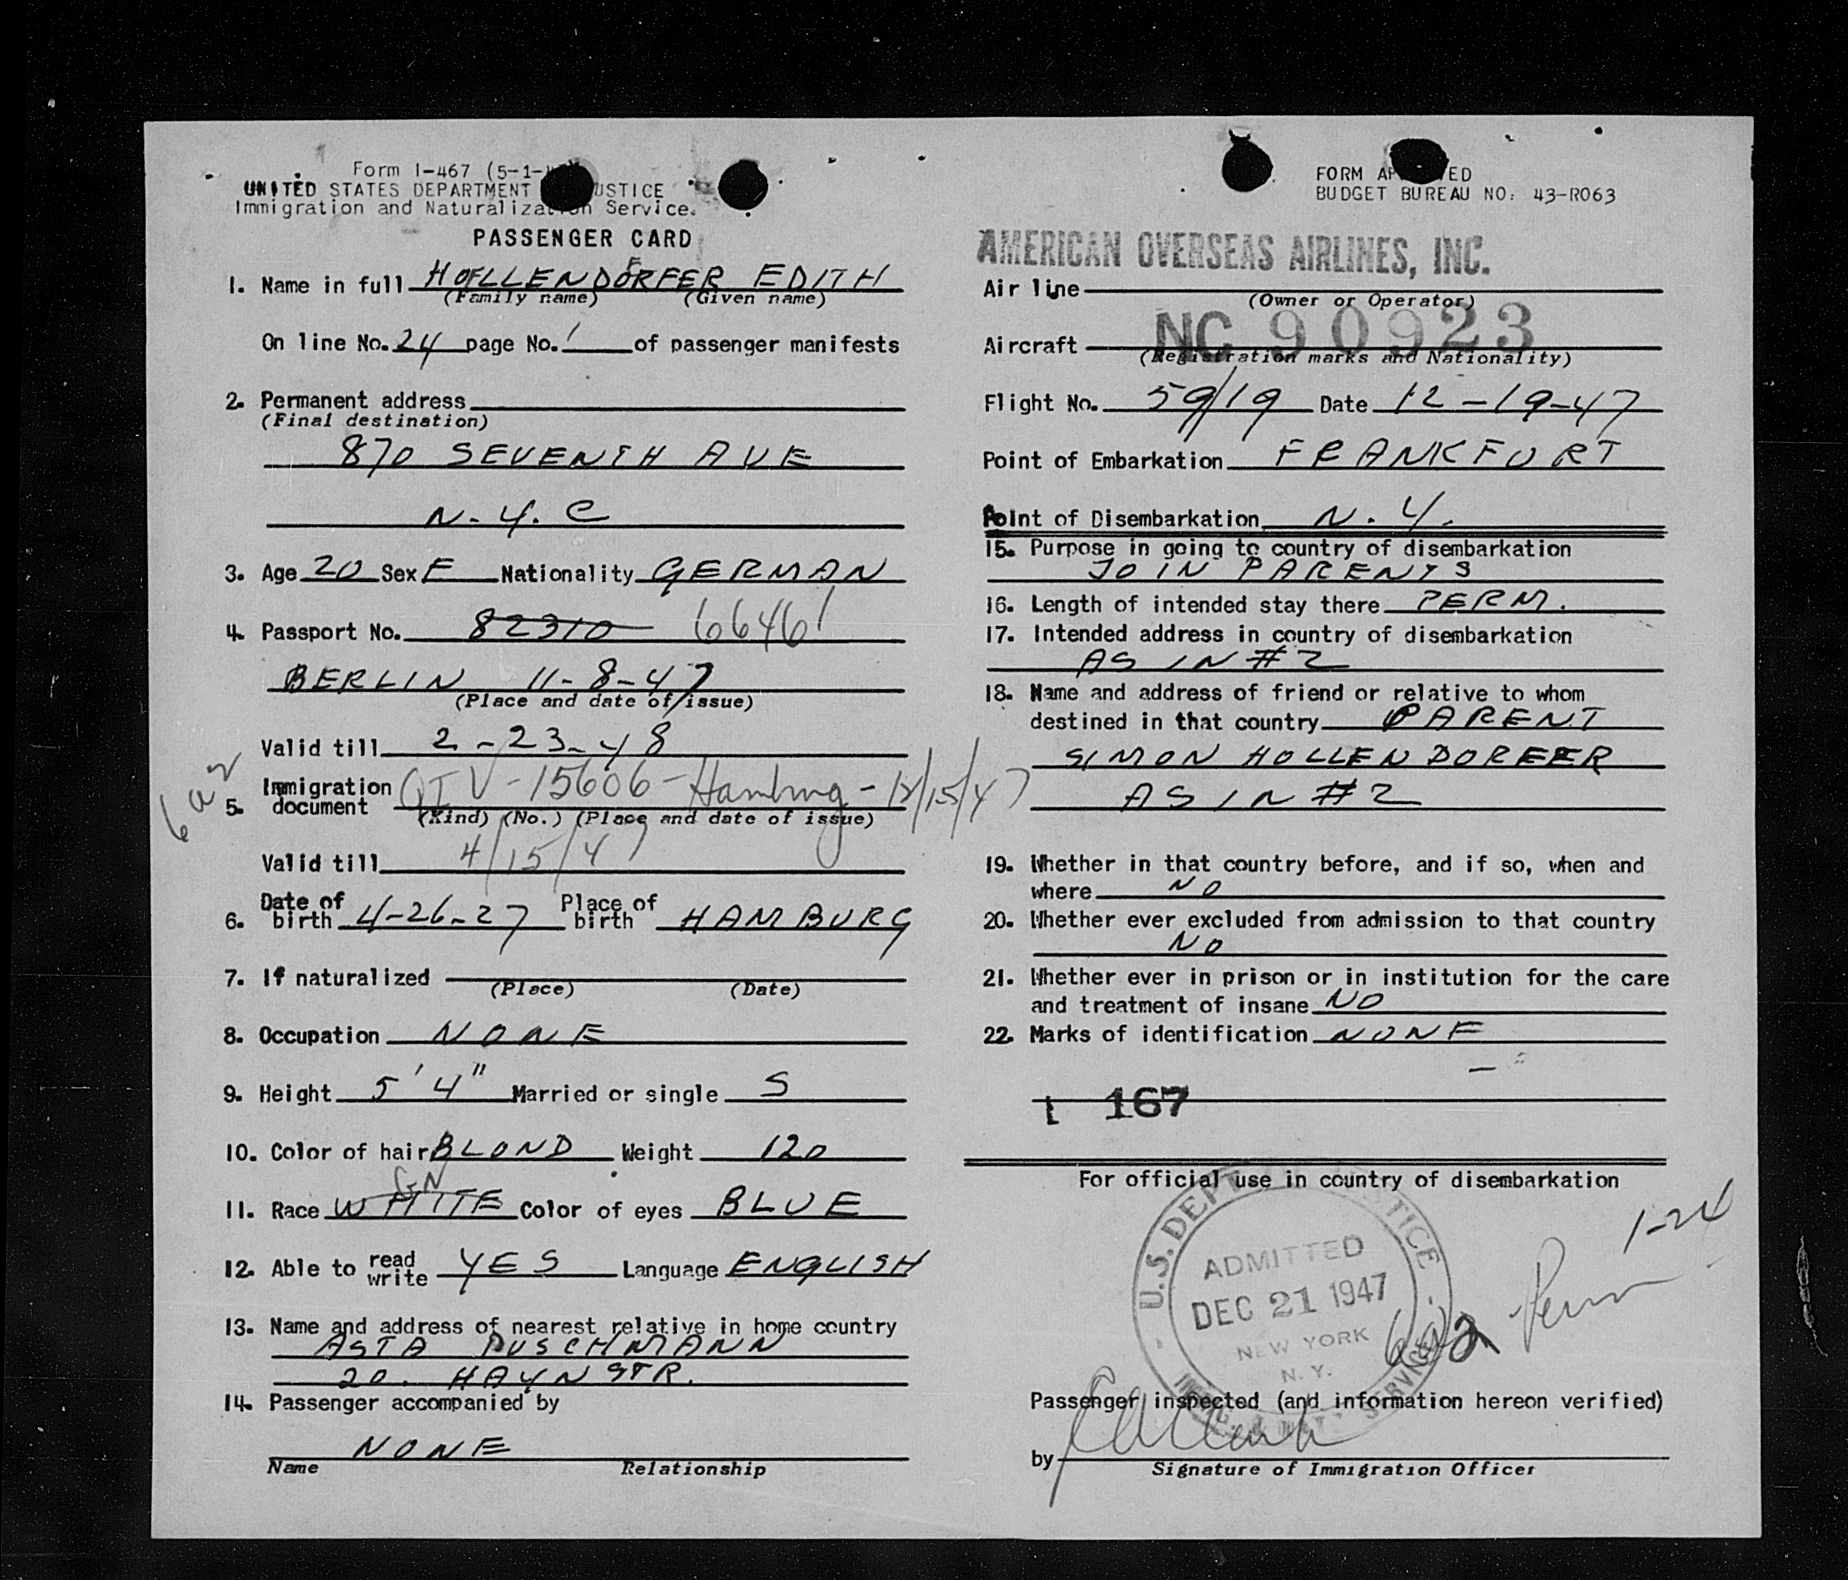 Form I-467 (5-1-
UNITED STATES DEPARTMENT JUSTICE
Immigration and Naturalization Service.
PASSENGER CARD
1. Name in full HOLLENDORFER EDITH
(Family name) (Given name)
On line No. 24 page No. 1 of passenger manifests
2. Permanent address
(Final destination)
870 SEVENTH AVE
N.Y.C
3. Age 20 Sex F Nationality GERMAN
4. Passport No. 82310 66461
BERLIN 11-8-47
(Place and date of issue)
Valid till 2-23-48
5. Immigration document QIV-15606-Hamburg-12/15/47
(Kind) (No.) (Place and date of issue)
Valid till 4/15/47
6. Date of birth 4-26-27 Place of birth HAMBURG
7. If naturalized
(Place) (Date)
8. Occupation NONE
9. Height 5'4" Married or single S
10. Color of hair BLOND Weight 120
GN
11. Race WHITE Color of eyes BLUE
12. Able to read write YES Language ENGLISH
13. Name and address of nearest relative in home country
ASTA PUSCHMANN
20. HAYNSTR.
14. Passenger accompanied by
NONE
Name Relationship
FORM APPROVED
BUDGET BUREAU NO: 43-R063
AMERICAN OVERSEAS AIRLINES, INC.
Air line
(Owner or Operator)
Aircraft NC 90923
(Registration marks and Nationality)
Flight No. 59/19 Date 12-19-47
Point of Embarkation FRANKFURT
Point of Disembarkation N.Y.
15. Purpose in going to country of disembarkation
JOIN PARENTS
16. Length of intended stay there PERM.
17. Intended address in country of disembarkation
AS IN #2
18. Name and address of friend or relative to whom
destined in that country PARENT
SIMON HOLLENDORFER
AS IN #2
19. Whether in that country before, and if so, when and
where NO
20. Whether ever excluded from admission to that country
NO
21. Whether ever in prison or in institution for the care
and treatment of insane NO
22. Marks of identification NONE
1 167
For official use in country of disembarkation
U.S. DEPT. OF JUSTICE
ADMITTED
DEC 21 1947
NEW YORK
N.Y.
IMMIG. & NAT. SERVICE
Perm
1-24
Passenger inspected (and information hereon verified)
by
Signature of Immigration Officer